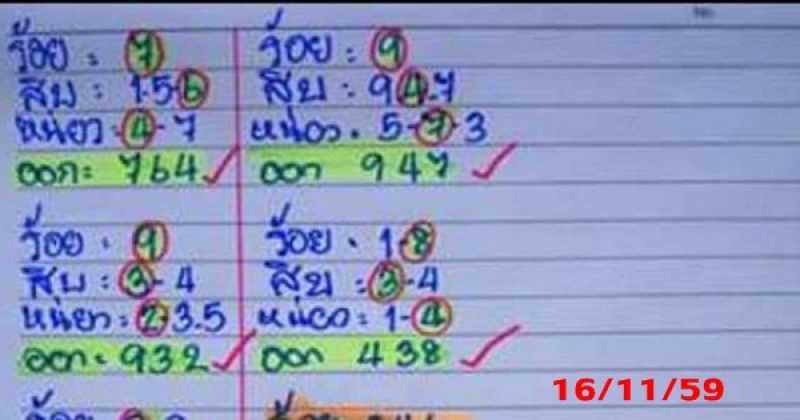 ร้อย : 7
สิบ : 1.5-6
หน่วย - 4 - 7
ออก = 764
ร้อย : 9
สิบ : 9 4.7
หน่วย . 5-7-3
ออก 947
ร้อย . 9
สิบ : 3-4
หน่วย : 2-3.5
ออก = 932
ร้อย . 1-8
สิบ : 3-4
หน่วย : 1-4
ออก 438
16/11/59